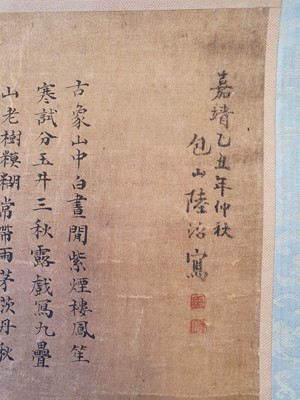 嘉靖乙丑年仲秋
包山陸治寫
古象山中白晝閒紫煙樓鳳笙
寒試分玉井三秋露戲寫九疊
山老樹糢糊常帶雨茅茨丹秋